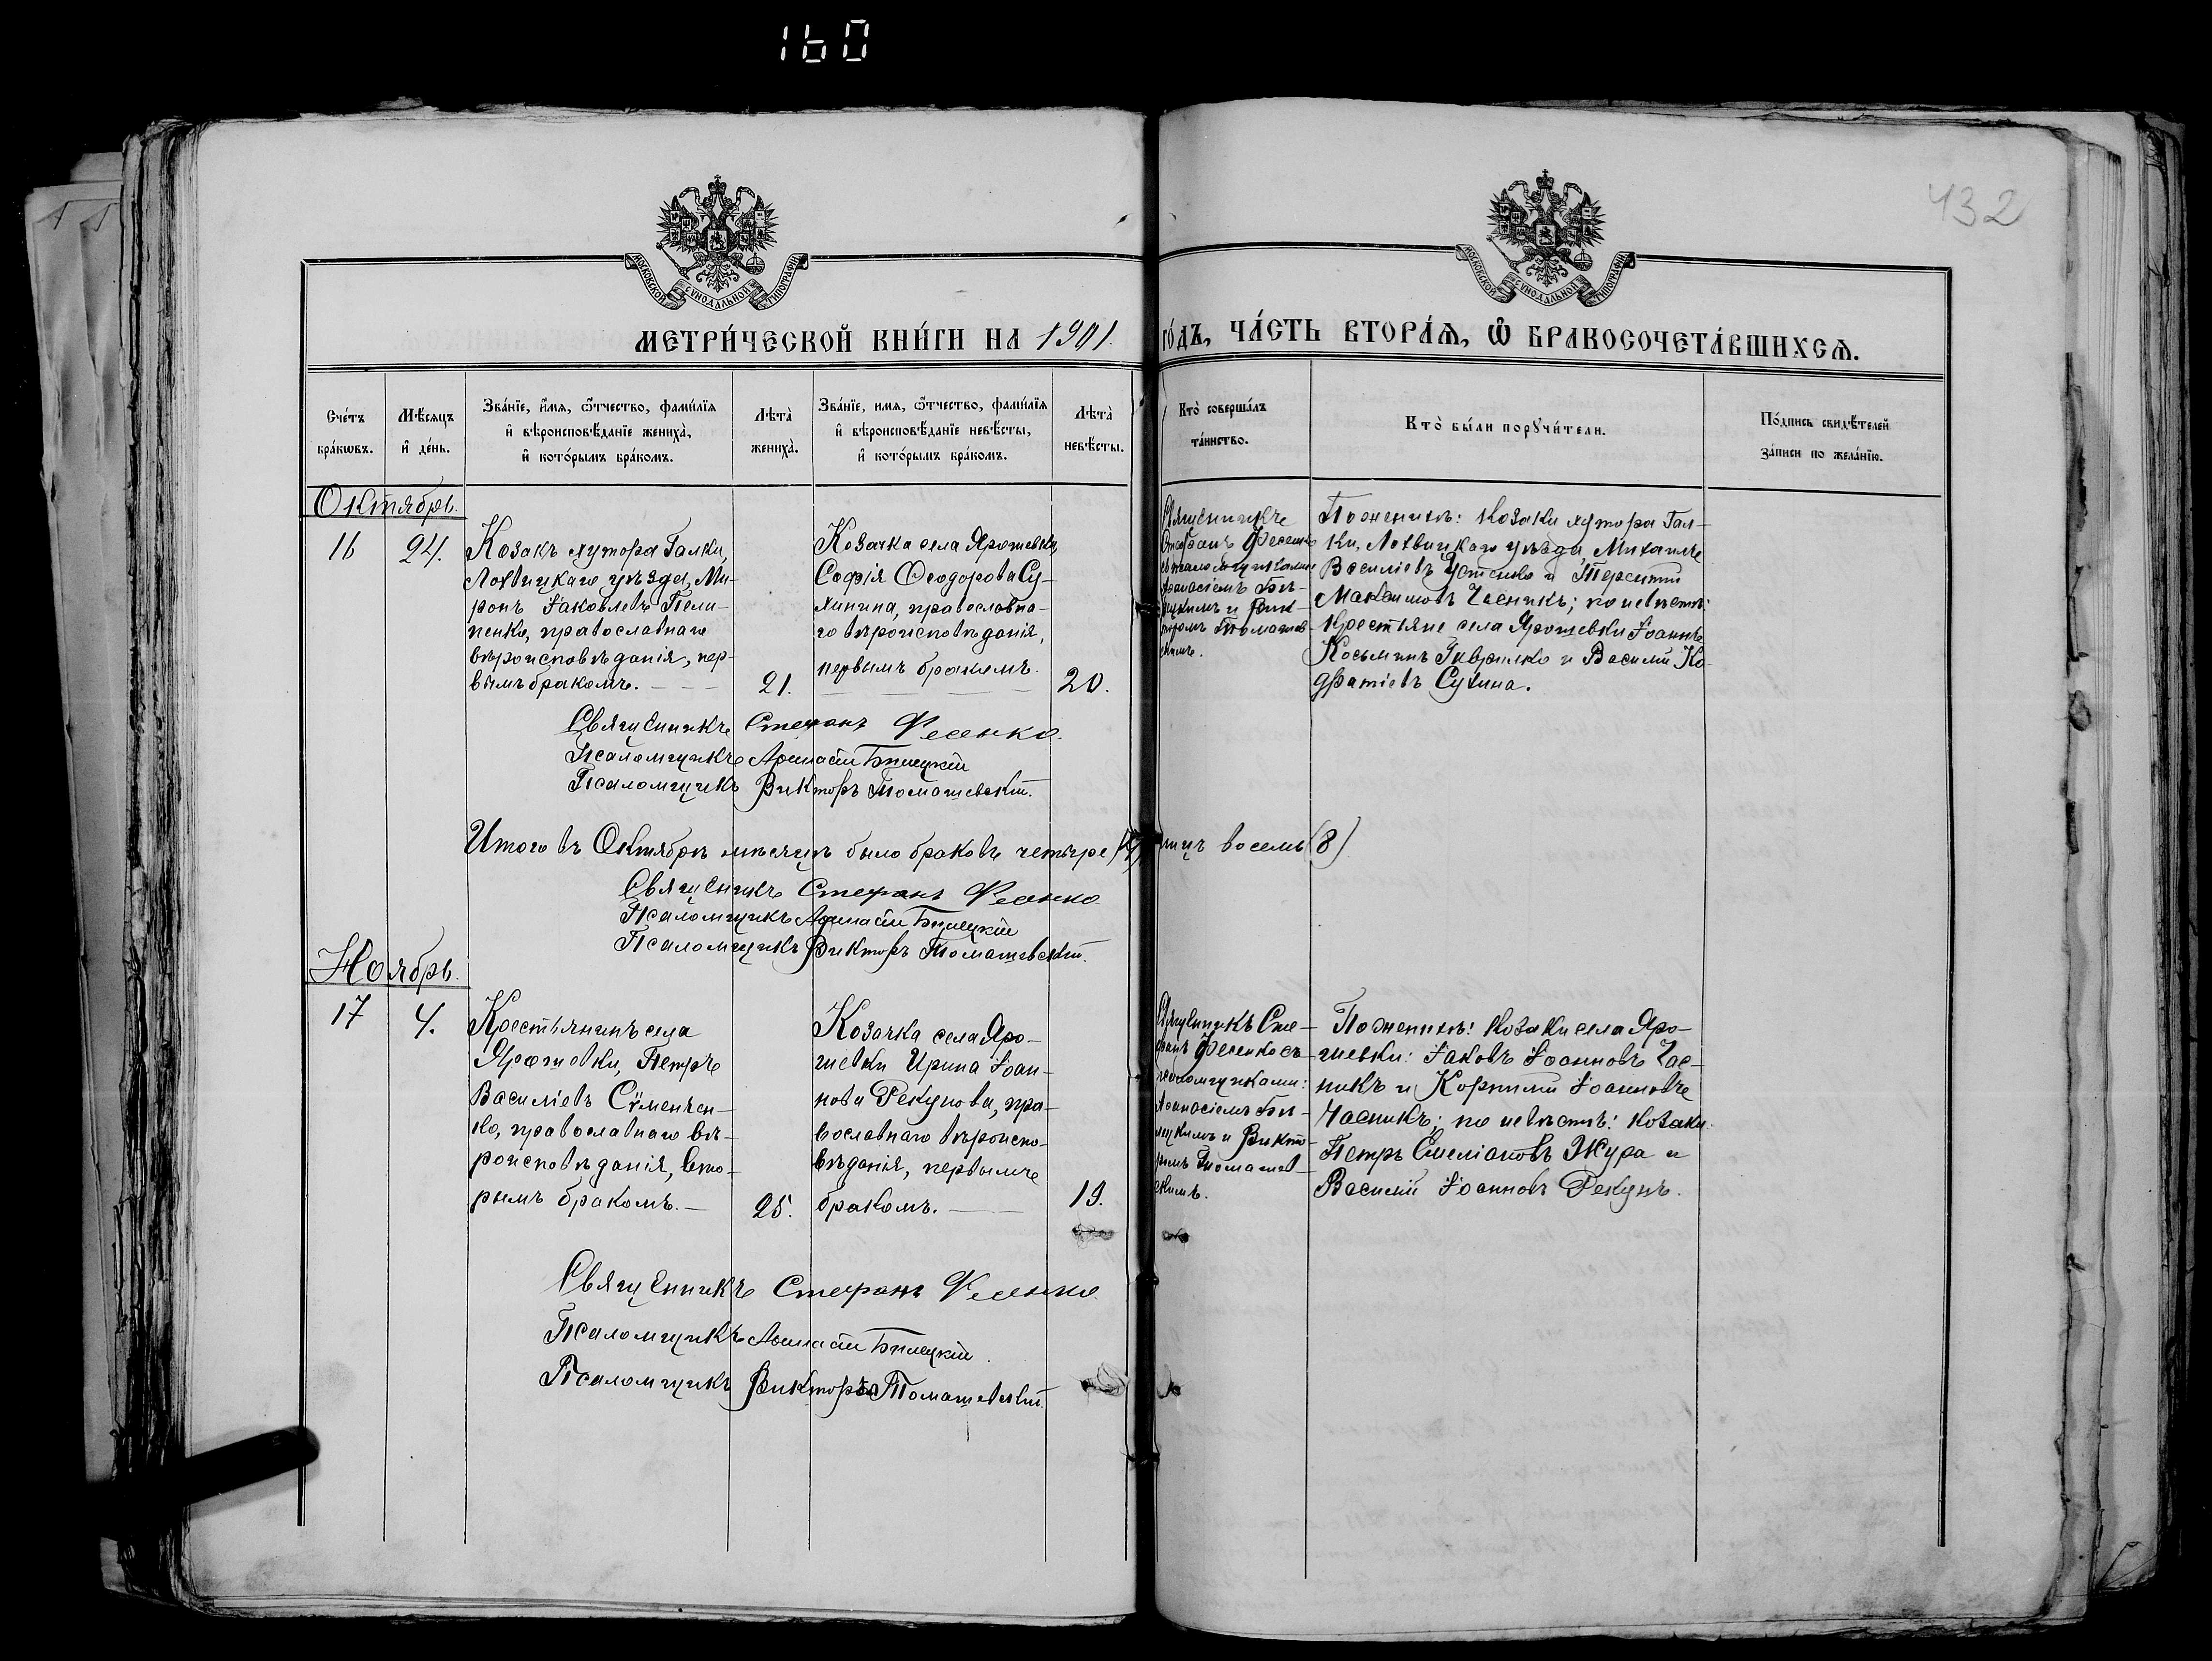 160
432
МОСКОВСКОЙ СѴНОДАЛЬНОЙ ТИПОГРАФІИ
МОСКОВСКОЙ СѴНОДАЛЬНОЙ ТИПОГРАФІИ
МЕТРИ́ЧЕСКОЙ КНИ́ГИ НА 1901. ГО́ДЪ, ЧА́СТЬ ВТОРА́Ѧ, Ѡ҆ БРАКОСОЧЕТА́ВШИХСѦ.
Сче́тъ бра́кѡвъ.
Мѣ́сѧцъ и҆ де́нь.
Зва́нїе, и҆́мѧ, ѻ҆́тчество, фамі́лїѧ и҆ вѣроисповѣ́данїе жениха̀, и҆ кото́рымъ бра́комъ.
Лѣта̀ жениха̀.
Зва́нїе, и҆мѧ, ѻ҆́тчество, фамі́лїѧ и҆ вѣроисповѣ́данїе невѣ́сты, и҆ кото́рымъ бра́комъ.
Лѣта̀ невѣ́сты.
Кто̀ соверша́лъ та́инство.
Кто̀ бы́ли порꙋчи́тели.
По́дпись свидѣ́телей за́писи по жела́нїю.
Октябрь.
16
24.
Козакъ хутора Галки,
Лохвицкаго уѣзда, Ми-
ронъ Іаковлевъ Пили-
пенко, православнаго
вѣроисповѣданія, пер-
вымъ бракомъ.
21.
Козачка села Ярошевки
Софія Ѳеодорова Су-
хинина, православна-
го вѣроисповѣданія,
первымъ бракомъ.
20.
Священникъ
Стефанъ Фесенко
съ псаломщиками
Аѳанасіемъ Бѣ-
лецкимъ и Вик-
торомъ Томашев-
скимъ.
По женихѣ: козаки хутора Гал-
ки, Лохвицкаго уѣзда, Михаилъ
Василіевъ Устенко и Терентій
Максимовъ Часникъ; по невѣстѣ:
крестьяне села Ярошевки Іоаннъ
Косьминъ Гаврилко и Василій Ко-
дратіевъ Сухина.
Священникъ Стефанъ Фесенко.
Псаломщикъ Аѳанасій Бѣлецкій
Псаломщикъ Викторъ Томашевскій.
Итого въ Октябрѣ мѣсяцѣ было браковъ четыре (4) лицъ восемь (8)
Священникъ Стефанъ Фесенко
Псаломщикъ Аѳанасій Бѣлецкій
Псаломщикъ Викторъ Томашевскій.
Ноябрь.
17
4.
Крестьянинъ села
Ярошевки, Петръ
Василіевъ
православнаго вѣ-
роисповѣданія, вто-
рымъ бракомъ.
25.
Козачка села Яро-
шевки Ирина Іоан-
нова Рекунова, пра-
вославнаго вѣроиспо-
вѣданія, первымъ
бракомъ.
19.
Священникъ Сте-
фанъ Фесенко съ
псаломщиками:
Аѳанасіемъ Бѣ-
лецкимъ и Викто-
ромъ Томашев-
скимъ.
По женихѣ: козаки села Яро-
шевки: Іаковъ Іоанновъ Час-
никъ и Корнилій Іоанновъ
Часникъ; по невѣстѣ: козаки
Петръ Емеліановъ Жура и
Василій Іоанновъ Рекунъ.
Священникъ Стефанъ Фесенко.
Псаломщикъ Аѳанасій Бѣлецкій.
Псаломщикъ Викторъ Томашевскій.